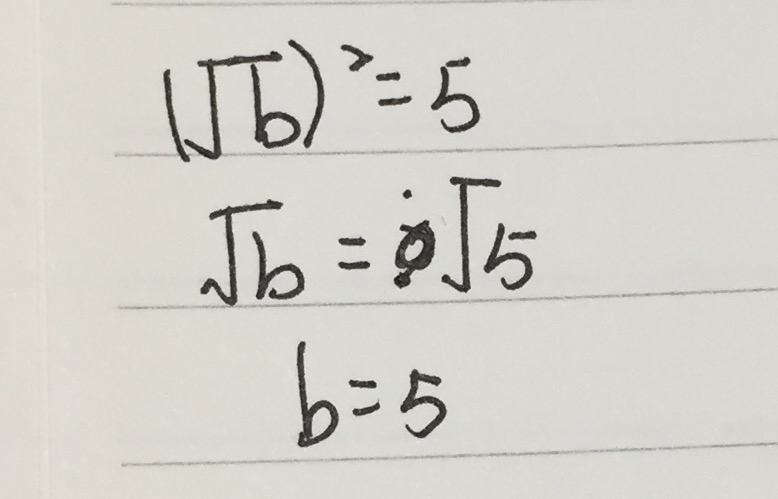 (√b)² = 5
√b = √5
b = 5